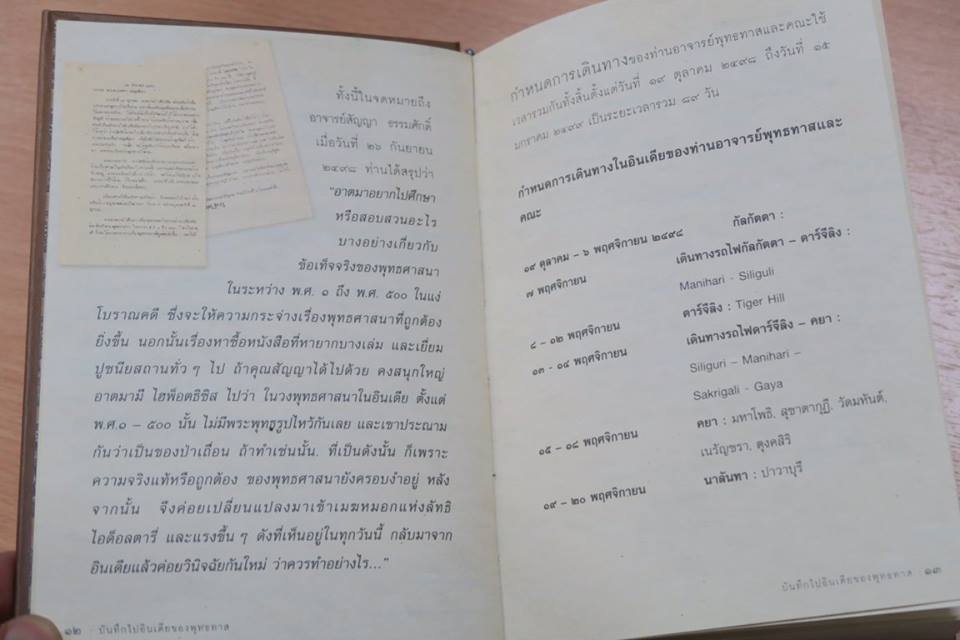 ทั้งนี้ในจดหมายถึง
อาจารย์สัญญา ธรรมศักดิ์
เมื่อวันที่ ๒๖ กันยายน
๒๔๙๘ ท่านได้สรุปว่า
"อาตมาอยากไปศึกษา
หรือสอบสวนอะไร
บางอย่างเกี่ยวกับ
ข้อเท็จจริงของพุทธศาสนา
ในระหว่าง พ.ศ. ๑ ถึง พ.ศ. ๕๐๐ ในแง่
โบราณคดี ซึ่งจะให้ความกระจ่างเรื่องพุทธศาสนาที่ถูกต้อง
ยิ่งขึ้น นอกนั้นเรื่องหาซื้อหนังสือที่หายากบางเล่ม และเยี่ยม
ปูชนียสถานทั่ว ๆ ไป ถ้าคุณสัญญาได้ไปด้วย คงสนุกใหญ่
อาตมามี ไฮพ็อตธิซิส ไปว่า ในวงพุทธศาสนาในอินเดีย ตั้งแต่
พ.ศ.๑ – ๕๐๐ นั้น ไม่มีพระพุทธรูปไหว้กันเลย และเขาประณาม
กันว่าเป็นของป่าเถื่อน ถ้าทำเช่นนั้น. ที่เป็นดังนั้น ก็เพราะ
ความจริงแท้หรือถูกต้อง ของพุทธศาสนายังครอบงำอยู่ หลัง
จากนั้น จึงค่อยเปลี่ยนแปลงมาเข้าเมฆหมอกแห่งลัทธิ
ไอด็อลตารี่ และแรงขึ้น ๆ ดังที่เห็นอยู่ในทุกวันนี้ กลับมาจาก
อินเดียแล้วค่อยวินิจฉัยกันใหม่ ว่าควรทำอย่างไร..."
๑๒ · บันทึกไปอินเดียของพุทธทาส
กำหนดการเดินทางของท่านอาจารย์พุทธทาสและคณะใช้
เวลารวมกันทั้งสิ้นตั้งแต่วันที่ ๑๙ ตุลาคม ๒๔๙๘ ถึงวันที่ ๑๕
มกราคม ๒๔๙๙ เป็นระยะเวลารวม ๘๙ วัน
กำหนดการเดินทางในอินเดียของท่านอาจารย์พุทธทาสและ
คณะ
๑๙ ตุลาคม – ๖ พฤศจิกายน ๒๔๙๘ กัลกัตตา :
๗ พฤศจิกายน เดินทางรถไฟกัลกัตตา – ดาร์จีลิง :
Manihari - Siliguli
๘ – ๑๒ พฤศจิกายน ดาร์จีลิง : Tiger Hill
๑๓ - ๑๔ พฤศจิกายน เดินทางรถไฟดาร์จีลิง – คยา :
Siliguri – Manihari –
Sakrigali - Gaya
๑๕ – ๑๘ พฤศจิกายน คยา : มหาโพธิ, สุชาตากุฎี, วัดมหันต์,
เนรัญชรา, ดุงคสิริ
๑๙ – ๒๐ พฤศจิกายน นาลันทา : ปาวาบุรี
บันทึกไปอินเดียของพุทธทาส · ๑๓